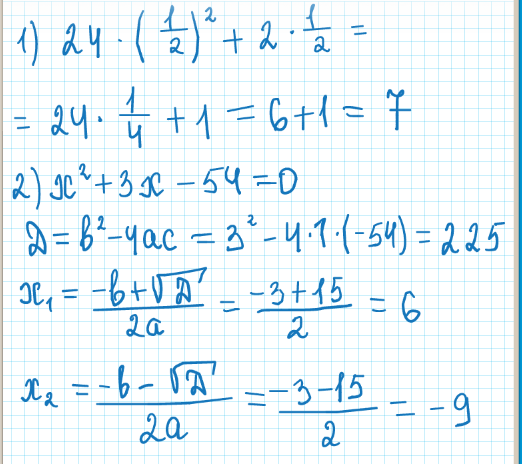 1) 24 · (1/2)² + 2 · 1/2 =
= 24 · 1/4 + 1 = 6 + 1 = 7
2) x² + 3x - 54 = 0
D = b² - 4ac = 3² - 4 · 1 · (-54) = 225
x₁ = (-b + √D)/2a = (-3 + 15)/2 = 6
x₂ = (-b - √D)/2a = (-3 - 15)/2 = -9